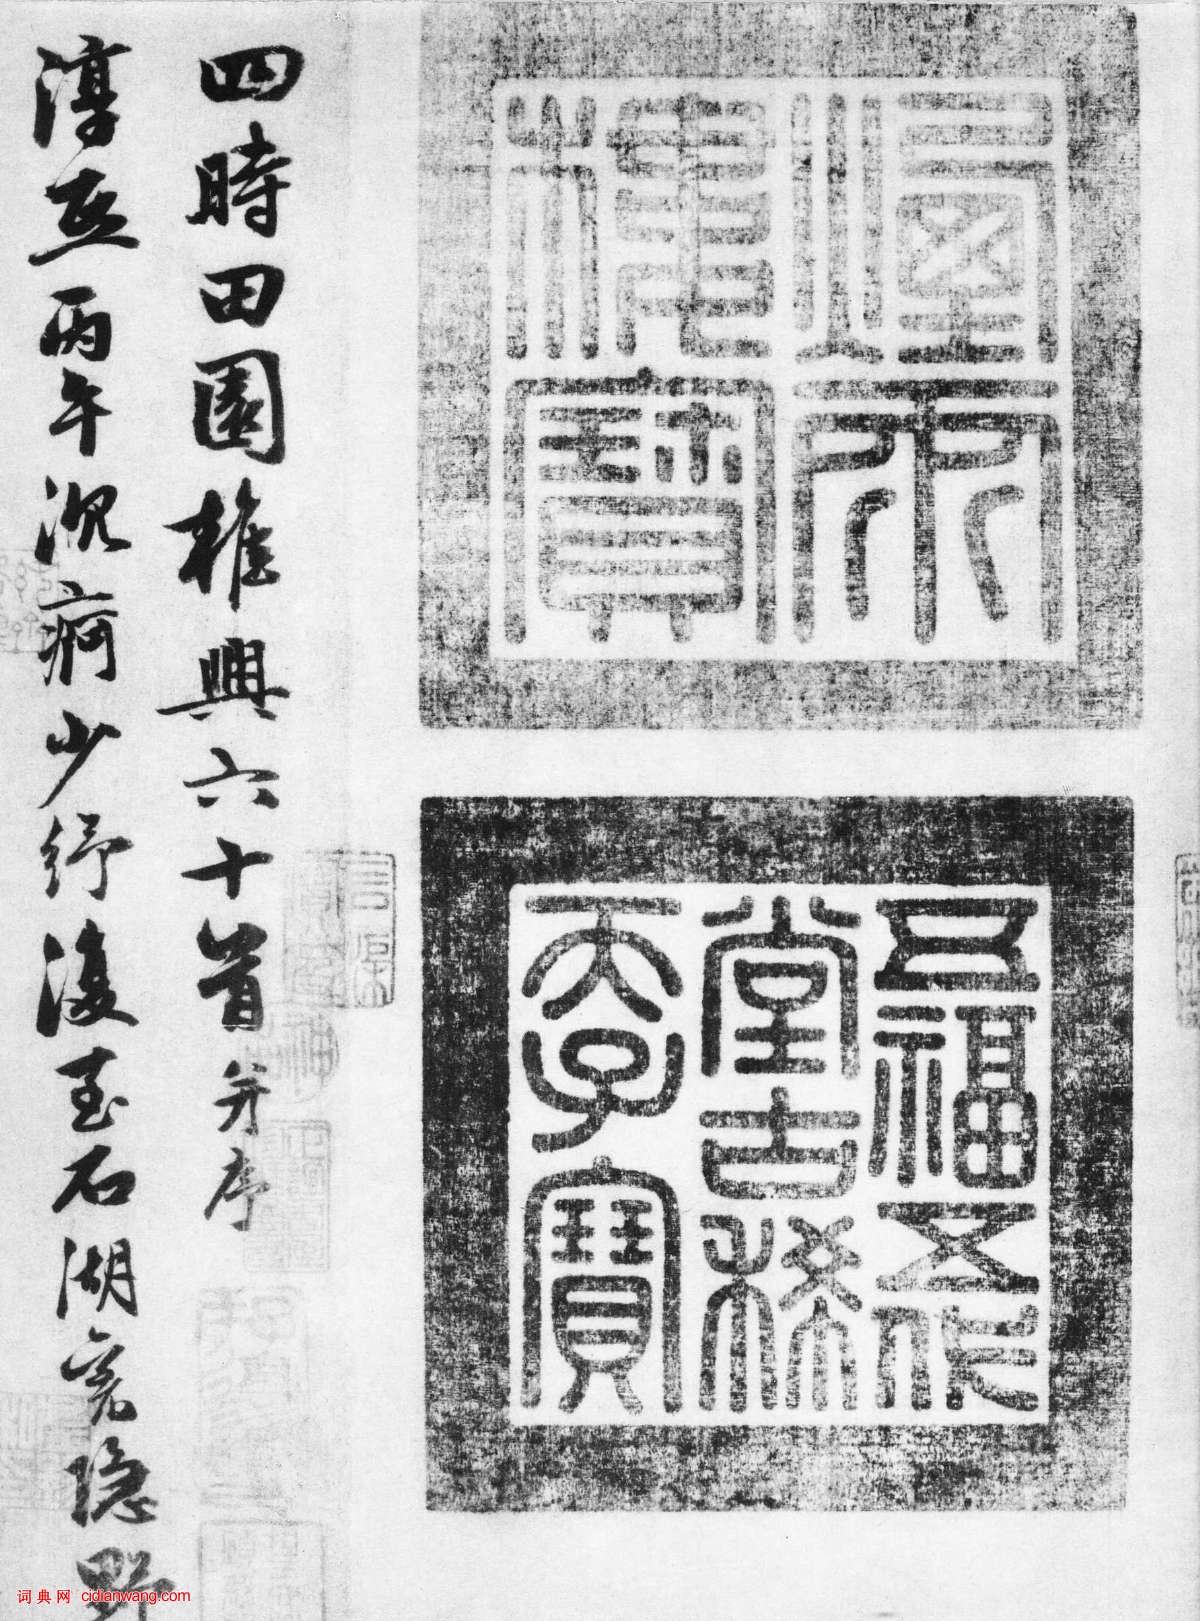 五福五代
堂古稀
天子寶
四時田園雜興六十首并序
淳熙丙午沉疴少紓復至石湖舊隱野
词典网 cidianwang.com